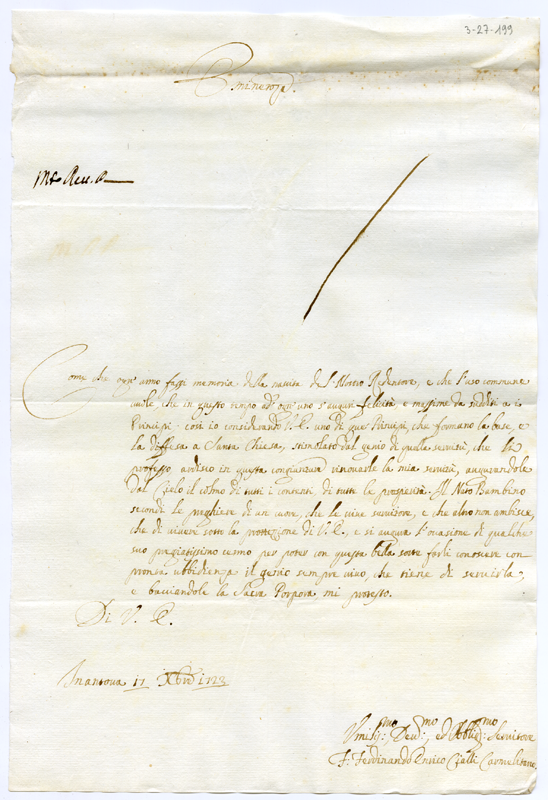 3-27-199
Eminenza.
Mto Reu. P
Come che ogn'anno fassi memoria della nascita del Nostro Redentore, e che l'uso comune
uuole, che in questo tempo ad ogn'uno s'auguri felicità, e massime da sudditi a i
Principi: così io considerando V. E. uno di que' Principi, che formano la base, e
la diffesa a Santa Chiesa, stimolato dal genio di quella seruitù, che le
professo, ardisco in questa congiuntura rinouarle la mia seruitù, augurandole
dal Cielo il colmo di tutti i contenti, di tutte le prosperità. Il Nato Bambino
secondi le preghiere di un cuore, che le uiue seruitore, e che altro non ambisce,
che di uiuere sotto la protezzione di V. E., e si augura l'occasione di qualche
suo pregiatissimo cenno per poter con questa bella sorte farle conoscere con
pronta ubbidienza il genio sempre uiuo, che tiene di seruirla,
e bacciandole la Sacra Porpora mi protesto.
Di V. E.
Mantoua 17 Xbre 1728
Umilis:mo Deuo:mo ed Obblig:mo Seruitore
F: Ferdinando Enrico Cialli Carmelitano